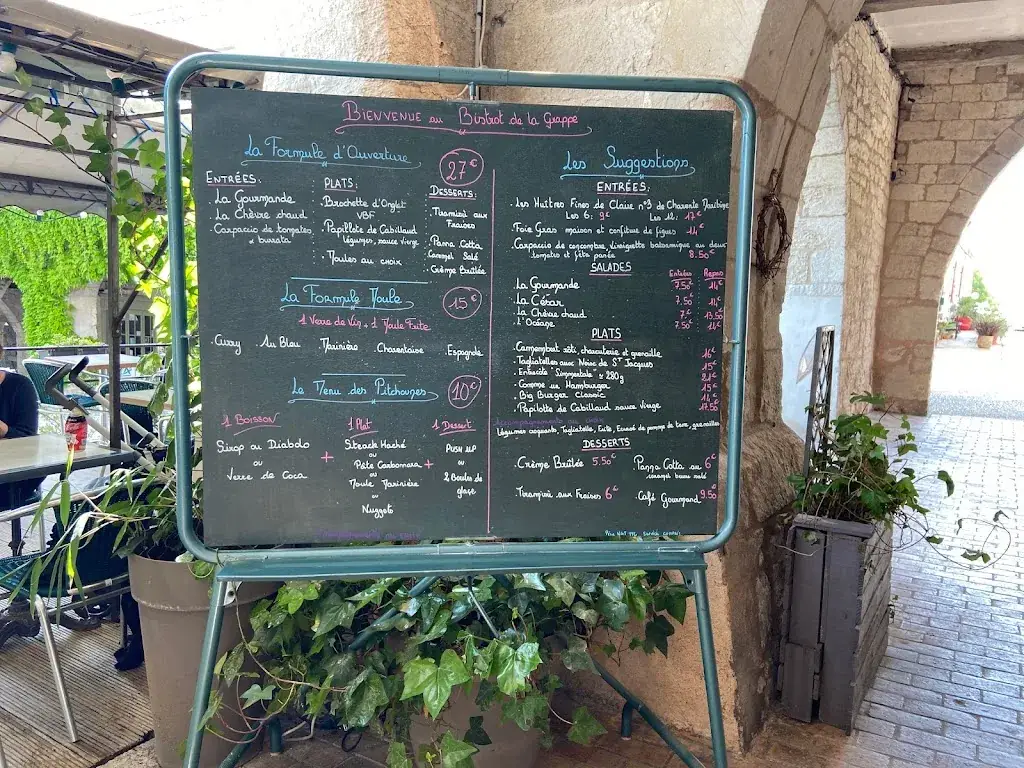 BIENVENUE au Bistrot de la Grappe
La Formule d'Ouverture
27€
ENTRÉES:
La Gourmande
La Chèvre chaud
Carpaccio de tomates
& burrata
PLATS:
Brochette d'Onglet
VBF
Papillote de Cabillaud
légumes, sauce vierge
Moules au choix
DESSERTS:
Tiramisù aux
Fraises
Panna Cotta
Caramel Salé
Crème Brûlée
La Formule Moule
15€
1 Verre de Vin + 1 Moule Frite
Curry Au Bleu Marinière Charentaise Espagnole
Le Menu des Pitchounes
10€
1 BOISSON
Sirop ou Diabolo
ou
Verre de Coca
+
1 Plat
Steack Haché
ou
Pâte Carbonara
ou
Moule Marinière
ou
Nuggets
+
1 Dessert
PUSH UP
ou
2 Boules de
glace
Les Suggestions
ENTRÉES:
Les Huîtres Fines de Claire n°3 de Charente Maritime
Les 6: 9€ Les 12: 17€
Foie Gras maison et confiture de figues 14€
Carpaccio de concombre, vinaigrette balsamique au deux
tomates et féta panée 8.50€
SALADES
Entrées Repas
La Gourmande 7.50€ 14€
La César 7.50€ 14€
La Chèvre chaud 7€ 13.50
L'Océane 7.50€ 14€
PLATS
Camembert rôti, charcuterie et grenaille 16€
Tagliatelles aux Noix de St Jacques 15€
Entrecôte "Simmentale" ± 280g 21€
Comme un Hamburger 15€
Big Burger Classic 14€
Papillote de Cabillaud sauce vierge 17.50
Légumes croquants, Tagliatelle, Frite, Ecrasé de pomme de terre, grenailles
DESSERTS
Crème Brûlée 5.50€
Panna Cotta au 6€
caramel beurre salé
Tiramisù aux Fraises 6€
Café Gourmand 9.50